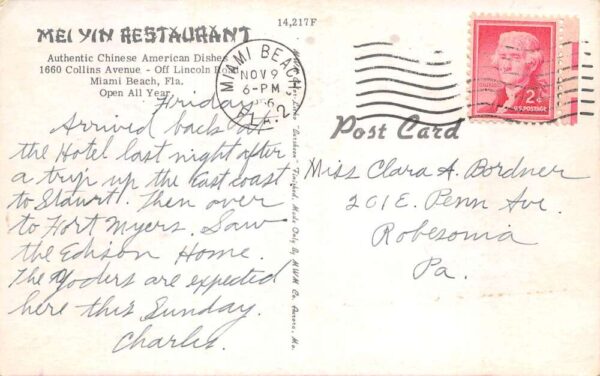 14,217F
MEI YIN RESTAURANT
Authentic Chinese American Dishes
1660 Collins Avenue - Off Lincoln
Miami Beach, Fla.
Open All Year
MIAMI BEACH,
NOV 9
6-PM
FLA. 2
2¢
U.S. POSTAGE
Post Card
Friday
Arrived back at
the Hotel last night after
a trip up the East coast
to Stuart. Then over
to Fort Myers. Saw
the Edison Home.
The Yoders are expected
here this Sunday.
Charles.
"Lusterchrome" Finished. Made Only By M.W.M. Co. Aurora, Mo.
Miss Clara A. Bordner
201 E. Penn Ave.
Robesonia
Pa.